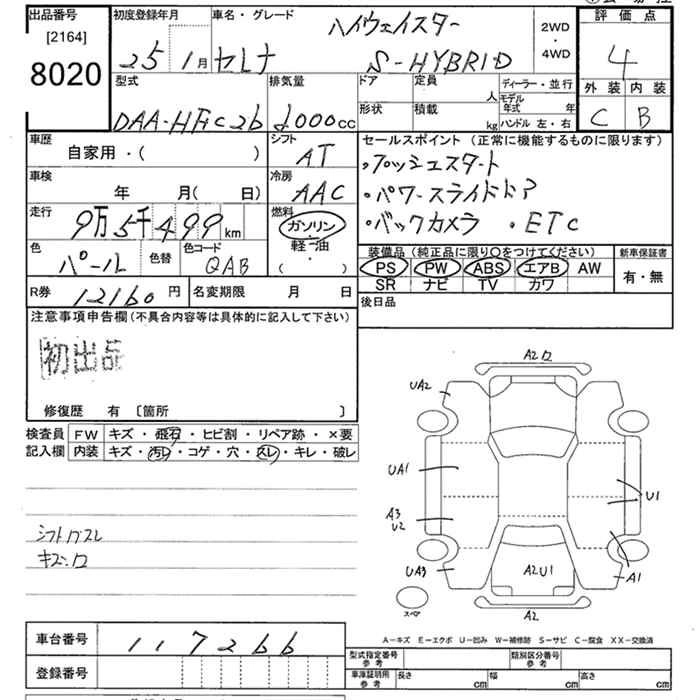 出品番号 初度登録年月 車名・グレード ハイウェイスター 2WD 評価点
[2164] 25 1月 セレナ S-HYBRID ・ 4WD 4
8020 型式 排気量 ドア 定員 人 ディーラー・並行 外装 内装
形状 積載 kg モデル年式 年 C B
DAA-HFC26 2000cc ハンドル 左・右
車歴 自家用・( ) シフト AT セールスポイント(正常に機能するものに限ります)
・プッシュスタート
車検 年 月( 日) 冷房 AAC ・パワースライドドア
走行 9万5千499km 燃料 ガソリン ・バックカメラ ・ETC
軽・油
( ・ )
色 パール 色替 色コード QAB 装備品(純正品に限り○をつけてください) 新車保証書
PS PW ABS エアB AW 有・無
SR ナビ TV カワ
R券 12160円 名変期限 月 日 後日品
注意事項申告欄(不具合内容等は具体的に記入して下さい)
初出品
修復歴 有 〔箇所 〕
検査員 FW キズ・飛石・ヒビ割・リペア跡・×要
記入欄 内装 キズ・汚レ・コゲ・穴・スレ・キレ・破レ
A2
UA2
UA1
U1
A3
U2
UA3
A2U1
A1
スペア
A2
A-キズ E-エクボ U-凹み W-補修跡 S-サビ C-腐食 XX-交換済
車台番号 117266 型式指定番号 参考 類別区分番号 参考
登録番号 車庫証明用 参考 長さ cm 幅 cm 高さ cm